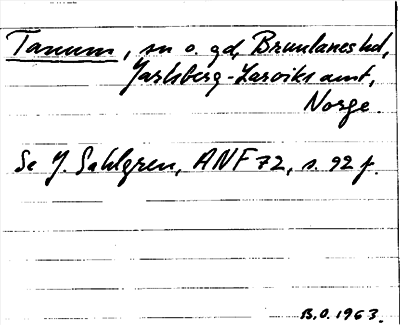 Tanum, sn o. gd, Brunlanes hd,
Jarlsberg-Larviks amt,
Norge.
Se J. Sahlgren, ANF 72, s. 92 f.
B.O. 1963.